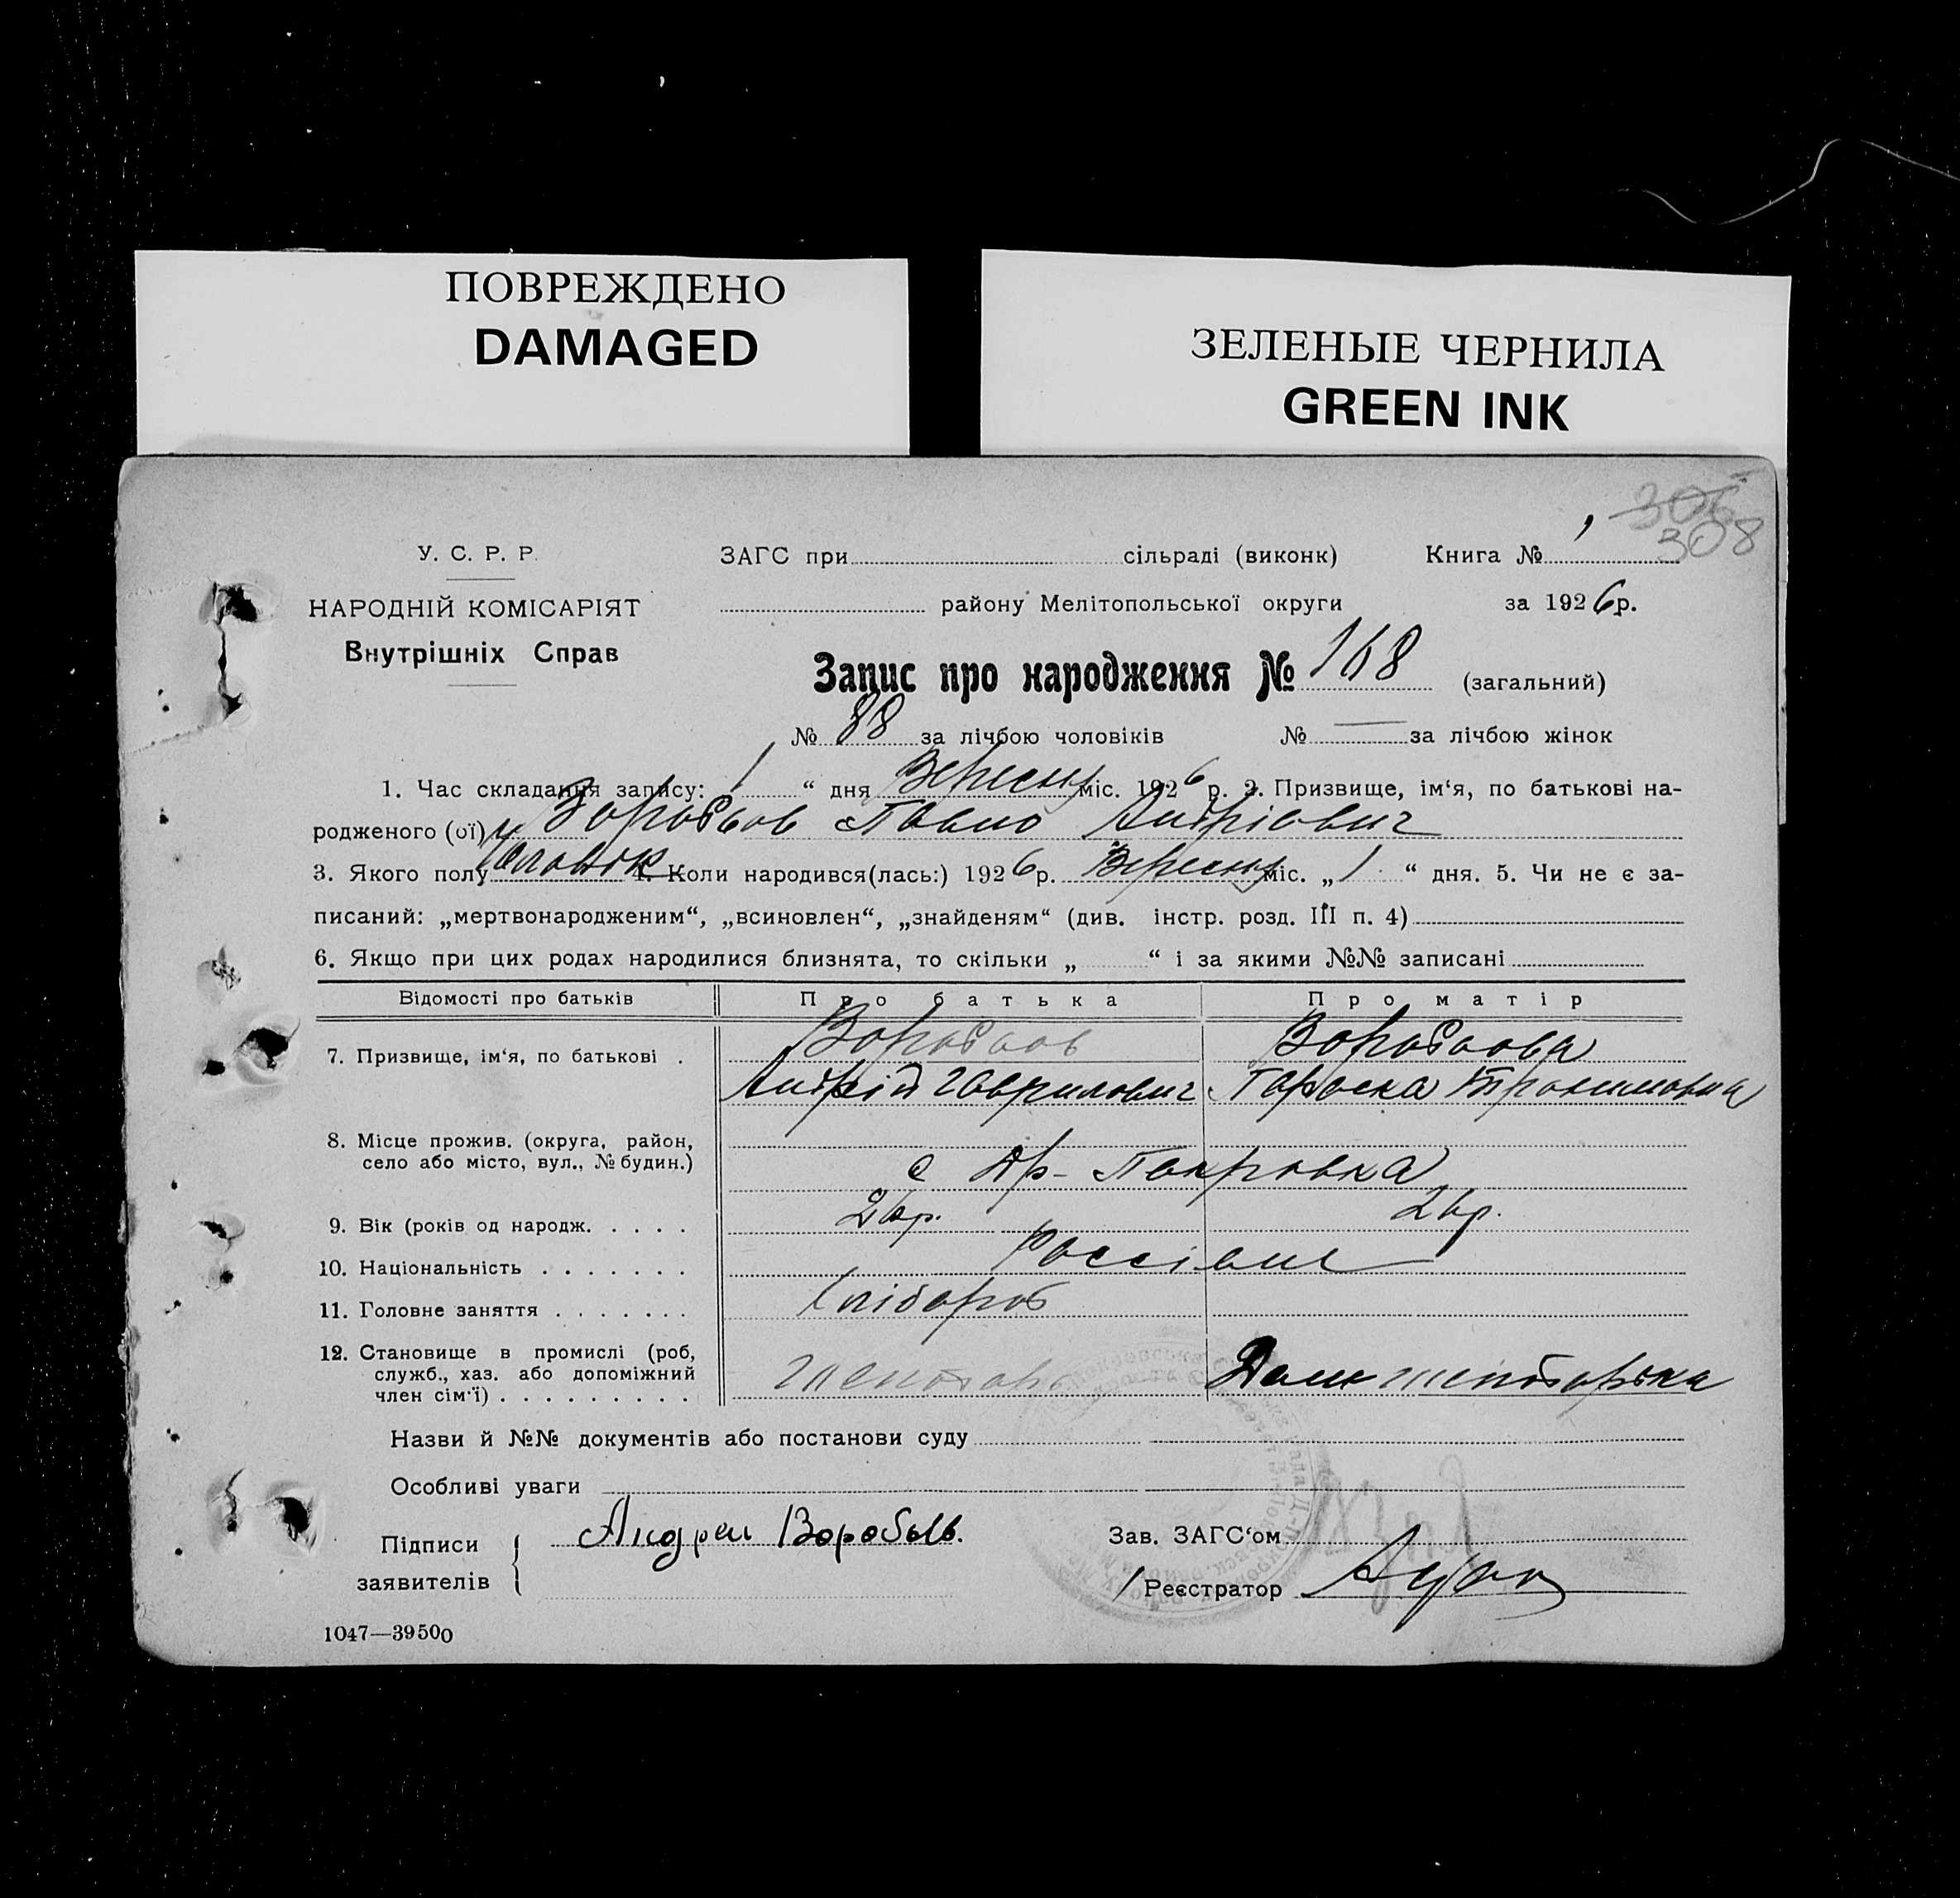 ПОВРЕЖДЕНО
DAMAGED
ЗЕЛЕНЫЕ ЧЕРНИЛА
GREEN INK
306
308
У. С. Р. Р.
НАРОДНІЙ КОМІСАРІЯТ
Внутрішніх Справ
ЗАГС при сільраді (виконк) Книга № 1
району Мелітопольської округи за 1926 р.
Запис про народження № 168 (загальний)
№ 88 за лічбою чоловіків № — за лічбою жінок
1. Час складання запису: 1 “ дня Вересня міс. 1926 р. 2. Призвище, ім‘я, по батькові на-
родженого (ої) Воробьов Павло Андріович
3. Якого полу Чоловік 4. Коли народився(лась:) 1926 р. Вересня міс. „ 1 “ дня. 5. Чи не є за-
писаний: „мертвонародженим“, „всиновлен“, „знайденям“ (див. інстр. розд. III п. 4)
6. Якщо при цих родах народилися близнята, то скільки „ “ і за якими №№ записані
Відомості про батьків Про батька Про матір
7. Призвище, ім‘я, по батькові . Воробьов Воробьова
Андрій Гаврилович
8. Місце прожив. (округа, район,
село або місто, вул., № будин.)
с Др-Покровка
9. Вік (років од народж. . . . . 26 р. 26 р.
10. Національність . . . . . . . Россіяне
11. Головне заняття . . . . . . . Хлібороб
12. Становище в промислі (роб,
служб., хаз. або допоміжний
член сім‘ї) . . . . . . . . .
Назви й №№ документів або постанови суду
Особливі уваги
Підписи
заявителів
Андрей Воробьв.
Зав. ЗАГС‘ом
Реєстратор
1047—39500